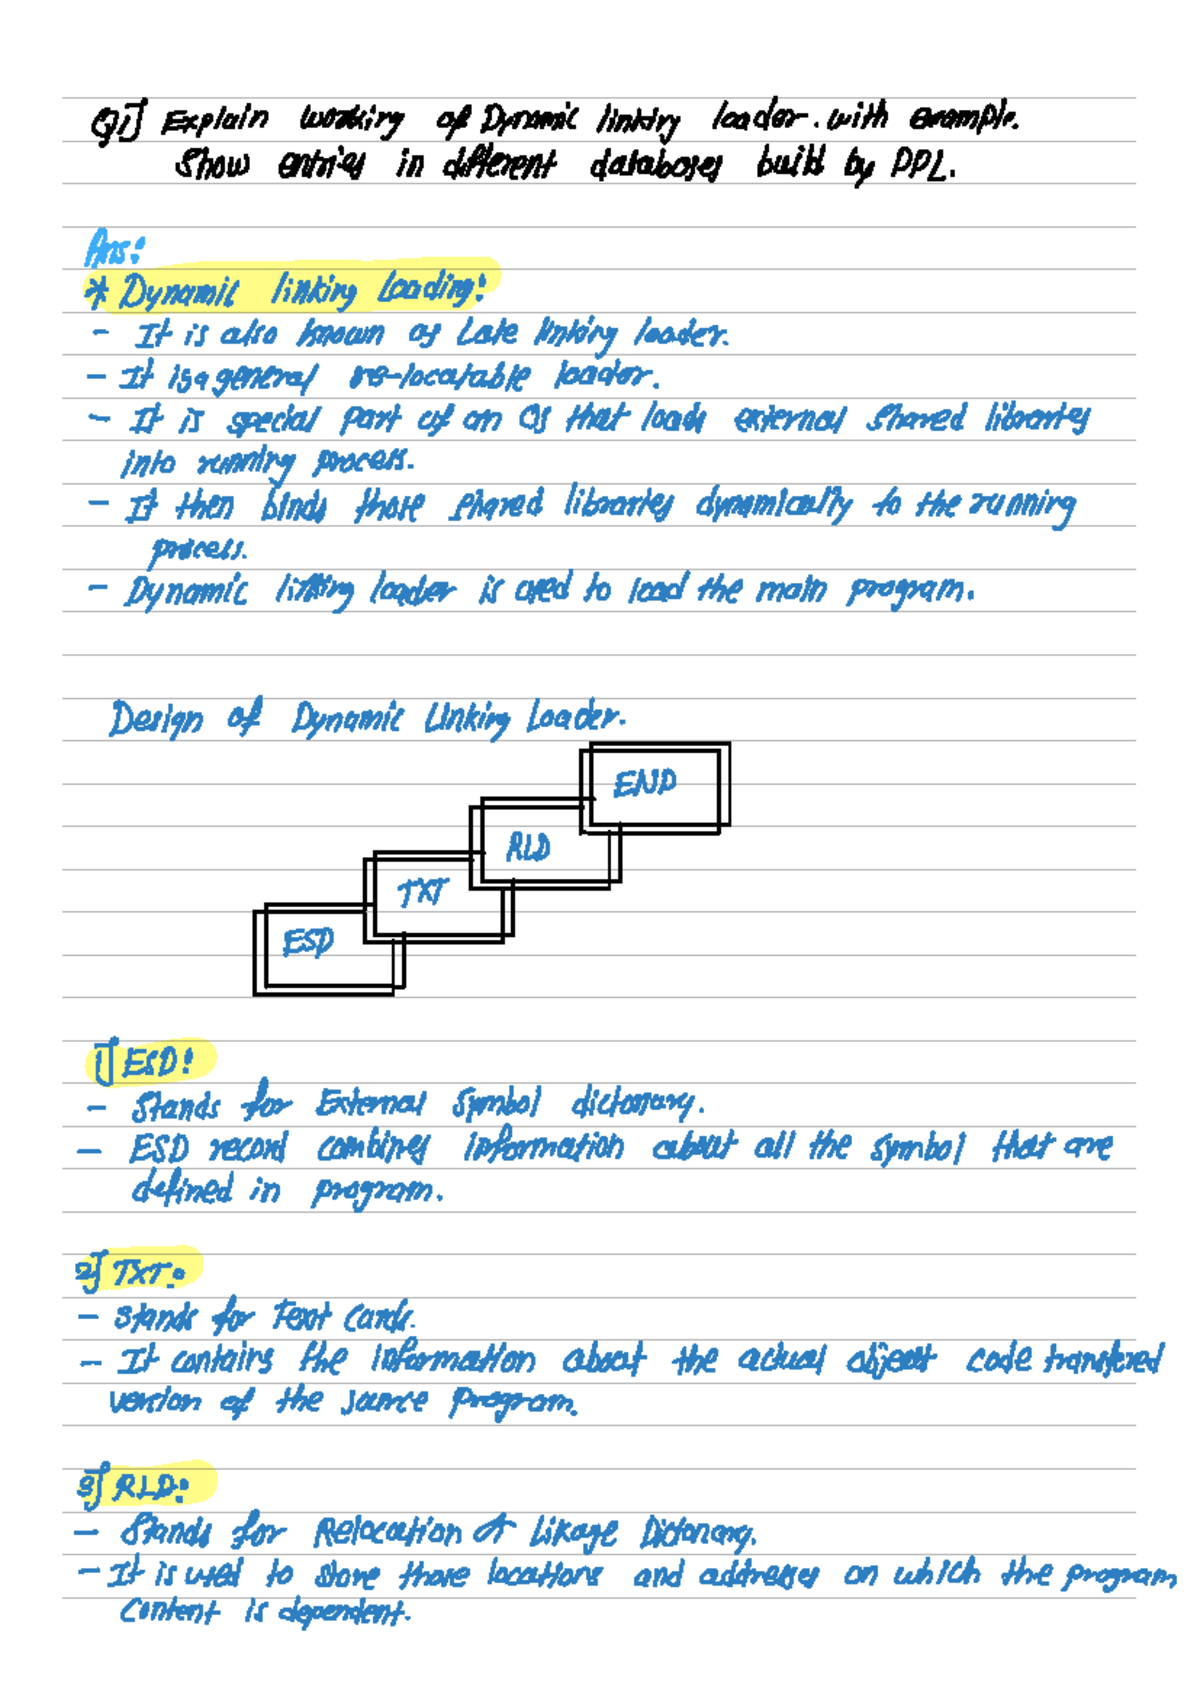 Q1] Explain working of Dynamic linking loader. with example.
Show entries in different databases build by DDL.
Ans:
* Dynamic linking Loading:
- It is also known as Late linking loader.
- It is a general re-locatable loader.
- It is special part of an OS that loads external shared libraries
into running process.
- It then binds those shared libraries dynamically to the running
process.
- Dynamic linking loader is used to load the main program.
Design of Dynamic Linking Loader.
END
RLD
TXT
ESD
1] ESD:
- Stands for External Symbol dictonary.
- ESD record combines information about all the symbol that are
defined in program.
2] TXT:
- Stands for Text Cards.
- It contains the information about the actual object code transfered
version of the source program.
3] RLD:
- Stands for Relocation & Likage Dictonary.
- It is used to store those locations and addresses on which the program
content is dependent.